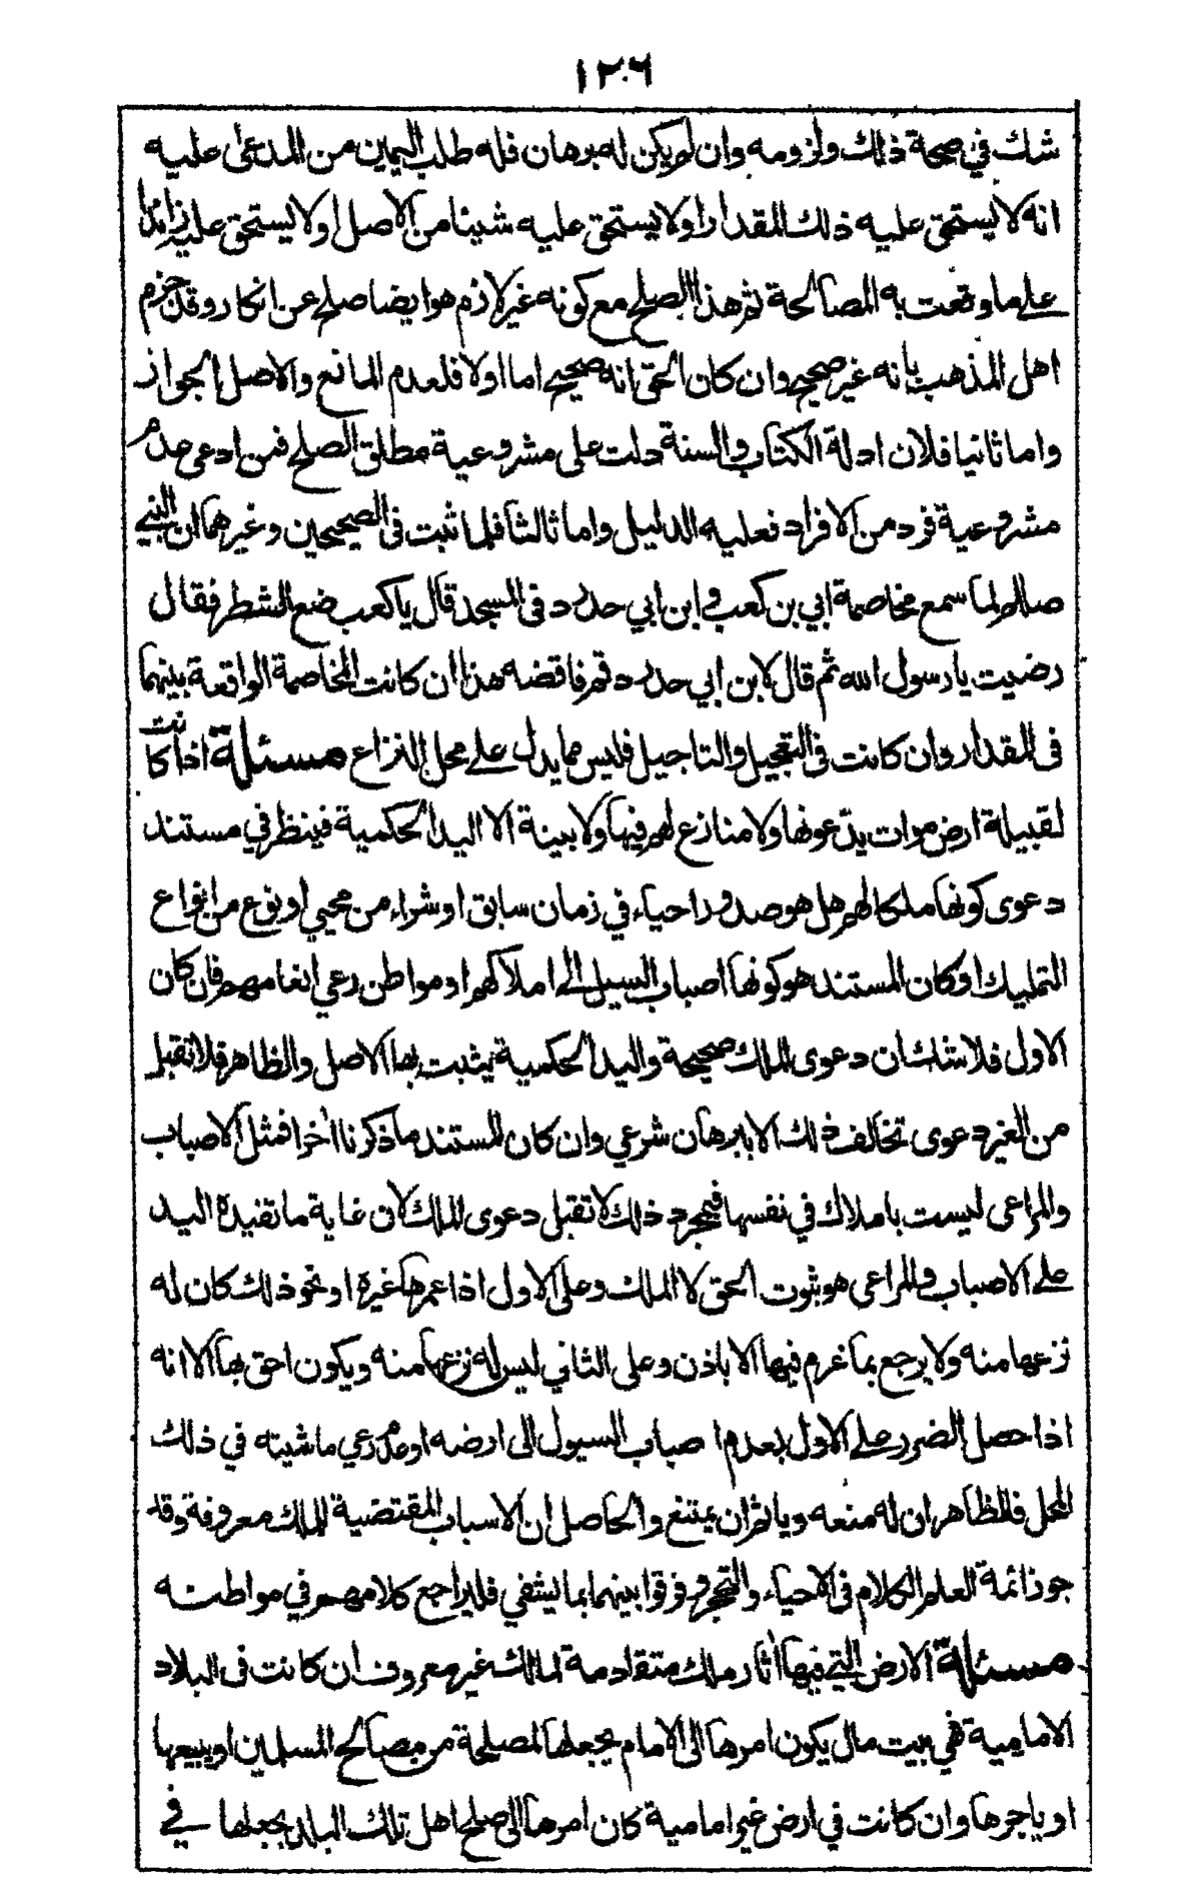 ١٢٠٦
شك في صحة ذلك ولزومه وان لم يكن له برهان فله طلب اليمين من المدعى عليه
انه لا يستحق عليه ذلك المقدار او لا يستحق عليه شيئا من الاصل او لا يستحق عليه زائدا
على ما وقعت به المصالحة ثم هذا الصلح مع كونه غير لازم هو ايضا صلح عن انكار وقد جزم
اهل المذهب بانه غير صحيح وان كان الحق انه صحيح اما اولا فلعدم المانع والاصل الجواز
واما ثانيا فلان ادلة الكتاب والسنة دلت على مشروعية مطلق الصلح فمن ادعى عدم
مشروعية فرد من الافراد فعليه الدليل واما ثالثا فلما ثبت في الصحيحين وغيرهما ان النبي
صللم لما سمع مخاصمة ابي بن كعب وابن ابي حدرد في المسجد قال يا كعب ضع الشطر فقال
رضيت يا رسول الله ثم قال لابن ابي حدرد قم فاقضه هذا ان كانت المخاصمة الواقعة بينهما
في المقدار وان كانت في التعجيل والتاجيل فليس مما يدل على محل النزاع مسئلة اذا كانت
لقبيلة ارض موات يدّعونها ولا منازع لهم فيها ولا بينة الا اليد الحكمية فينظر في مستند
دعوى كونها ملكا لهم هل هو صدور احياء في زمان سابق او شراء من محيي او نوع من انواع
التمليك او كان المستند هو كونها اصباب السيل الى املاكهم او مواطن رعي انعامهم فان كان
الاول فلا شك ان دعوى الملك صحيحة واليد الحكمية يثبت بها الاصل والظاهر فلا تقبل
من الغير دعوى تخالف ذلك الا ببرهان شرعي وان كان المستند ما ذكرنا اخرا فمثل الاصباب
والمراعى ليست باملاك في نفسها فبمجرد ذلك لا تقبل دعوى الملك لان غاية ما تفيده اليد
على الاصباب والمراعى هو ثبوت الحق لا الملك وعلى الاول اذا عمرها غيره او نحو ذلك كان له
نزعها منه ولا يرجع بما غرم فيها الا باذن وعلى الثاني ليس له نزعها منه ويكون احق بها الا انه
اذا حصل الضرر على الاول بعدم اصباب السيول الى ارضه او عدم رعي ماشيته في ذلك
المحل فالظاهر ان له منعه وياثم ان يمتنع والحاصل ان الاسباب المقتضية للملك معروفة وقد
جود ائمة العلم الكلام في الاحياء والتحجر وفرقوا بينهما بما يشفي فليراجع كلامهم في مواطنه
مسئلة الارض التي فيها اثار ملك متقادمة لمالك غير معروف ان كانت في البلاد
الامامية فهي بيت مال يكون امرها الى الامام يجعلها لمصلحة من مصالح المسلمين او يبيعها
او ياجرها وان كانت في ارض غير امامية كان امرها الى صلحاء اهل تلك البلد يجعلها في